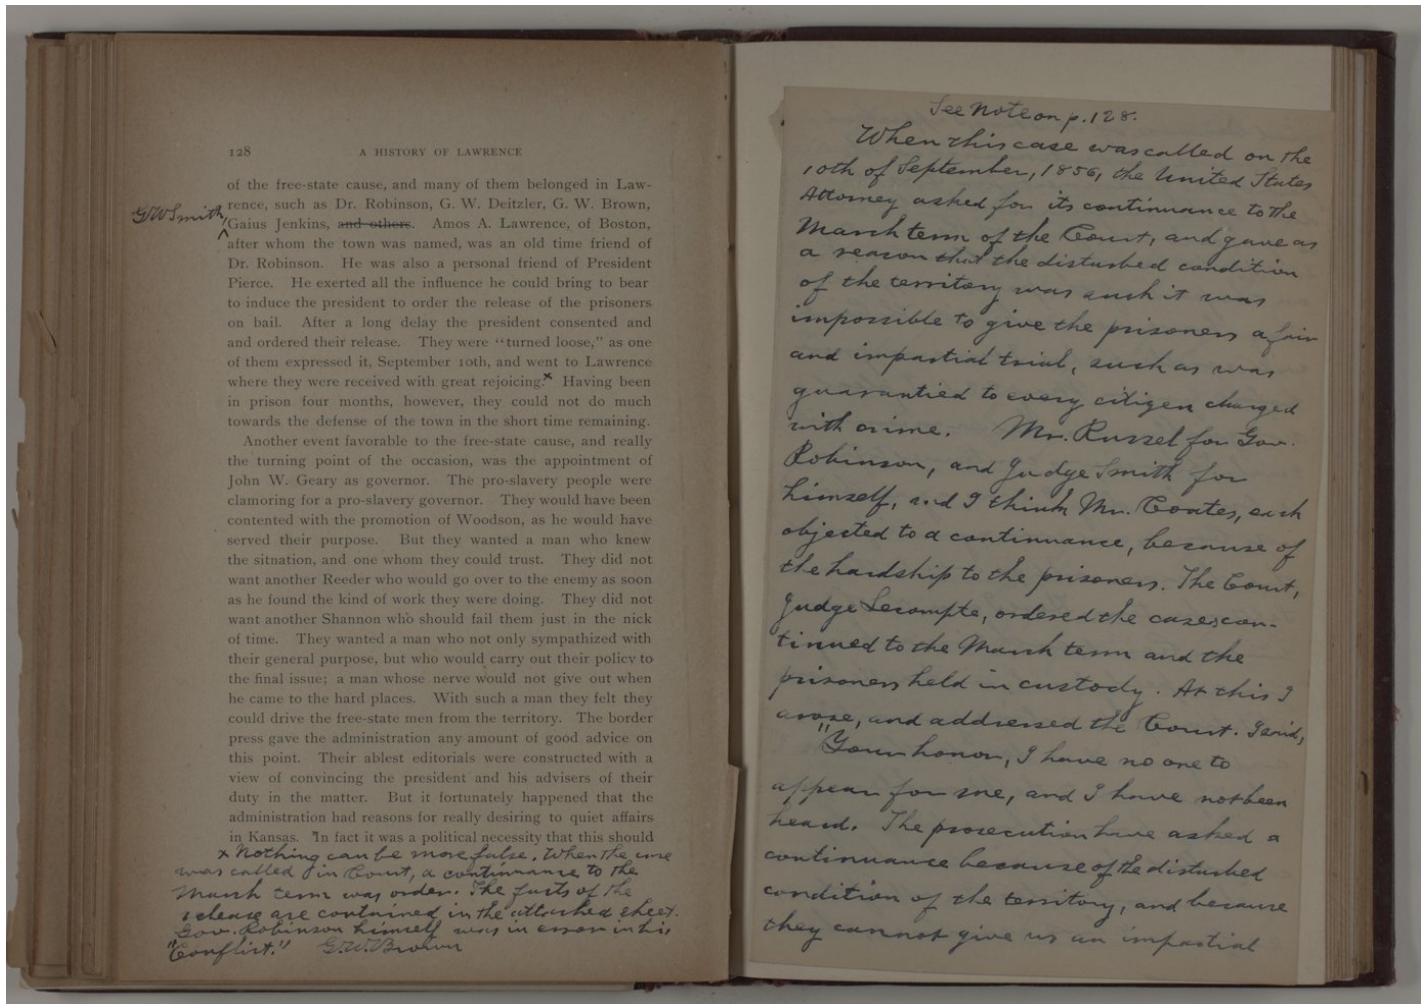 128 A HISTORY OF LAWRENCE
of the free-state cause, and many of them belonged in Law-
rence, such as Dr. Robinson, G. W. Deitzler, G. W. Brown,
GWSmith,
Gaius Jenkins, and others. Amos A. Lawrence, of Boston,
after whom the town was named, was an old time friend of
Dr. Robinson. He was also a personal friend of President
Pierce. He exerted all the influence he could bring to bear
to induce the president to order the release of the prisoners
on bail. After a long delay the president consented and
and ordered their release. They were "turned loose," as one
of them expressed it, September 10th, and went to Lawrence
where they were received with great rejoicing.x Having been
in prison four months, however, they could not do much
towards the defense of the town in the short time remaining.
Another event favorable to the free-state cause, and really
the turning point of the occasion, was the appointment of
John W. Geary as governor. The pro-slavery people were
clamoring for a pro-slavery governor. They would have been
contented with the promotion of Woodson, as he would have
served their purpose. But they wanted a man who knew
the sitnation, and one whom they could trust. They did not
want another Reeder who would go over to the enemy as soon
as he found the kind of work they were doing. They did not
want another Shannon who should fail them just in the nick
of time. They wanted a man who not only sympathized with
their general purpose, but who would carry out their policy to
the final issue; a man whose nerve would not give out when
he came to the hard places. With such a man they felt they
could drive the free-state men from the territory. The border
press gave the administration any amount of good advice on
this point. Their ablest editorials were constructed with a
view of convincing the president and his advisers of their
duty in the matter. But it fortunately happened that the
administration had reasons for really desiring to quiet affairs
in Kansas. In fact it was a political necessity that this should
x Nothing can be more false. When the case
was called in Court, a continuance to the
March term was order. The facts of the
release are contained in the attached sheet.
Gov. Robinson himself was in error in his
"Conflict." G.W. Brown
See Note on p. 128.
When this case was called on the
10th of September, 1856, the United States
Attorney asked for its continuance to the
March term of the Court, and gave as
a reason that the disturbed condition
of the territory was such it was
impossible to give the prisoners a fair
and impartial trial, such as was
guarantied to every citizen charged
with crime. Mr. Russel for Gov.
Robinson, and Judge Smith for
himself, and I think Mr. Coates, each
objected to a continuance, because of
the hardship to the prisoners. The Court,
Judge Lecompte, ordered the cases con-
tinued to the March term and the
prisoners held in custody. At this I
arose, and addressed the Court. I said,
"Your honor, I have no one to
appear for me, and I have not been
heard. The prosecution have asked a
continuance because of the disturbed
condition of the territory, and because
they cannot give us an impartial